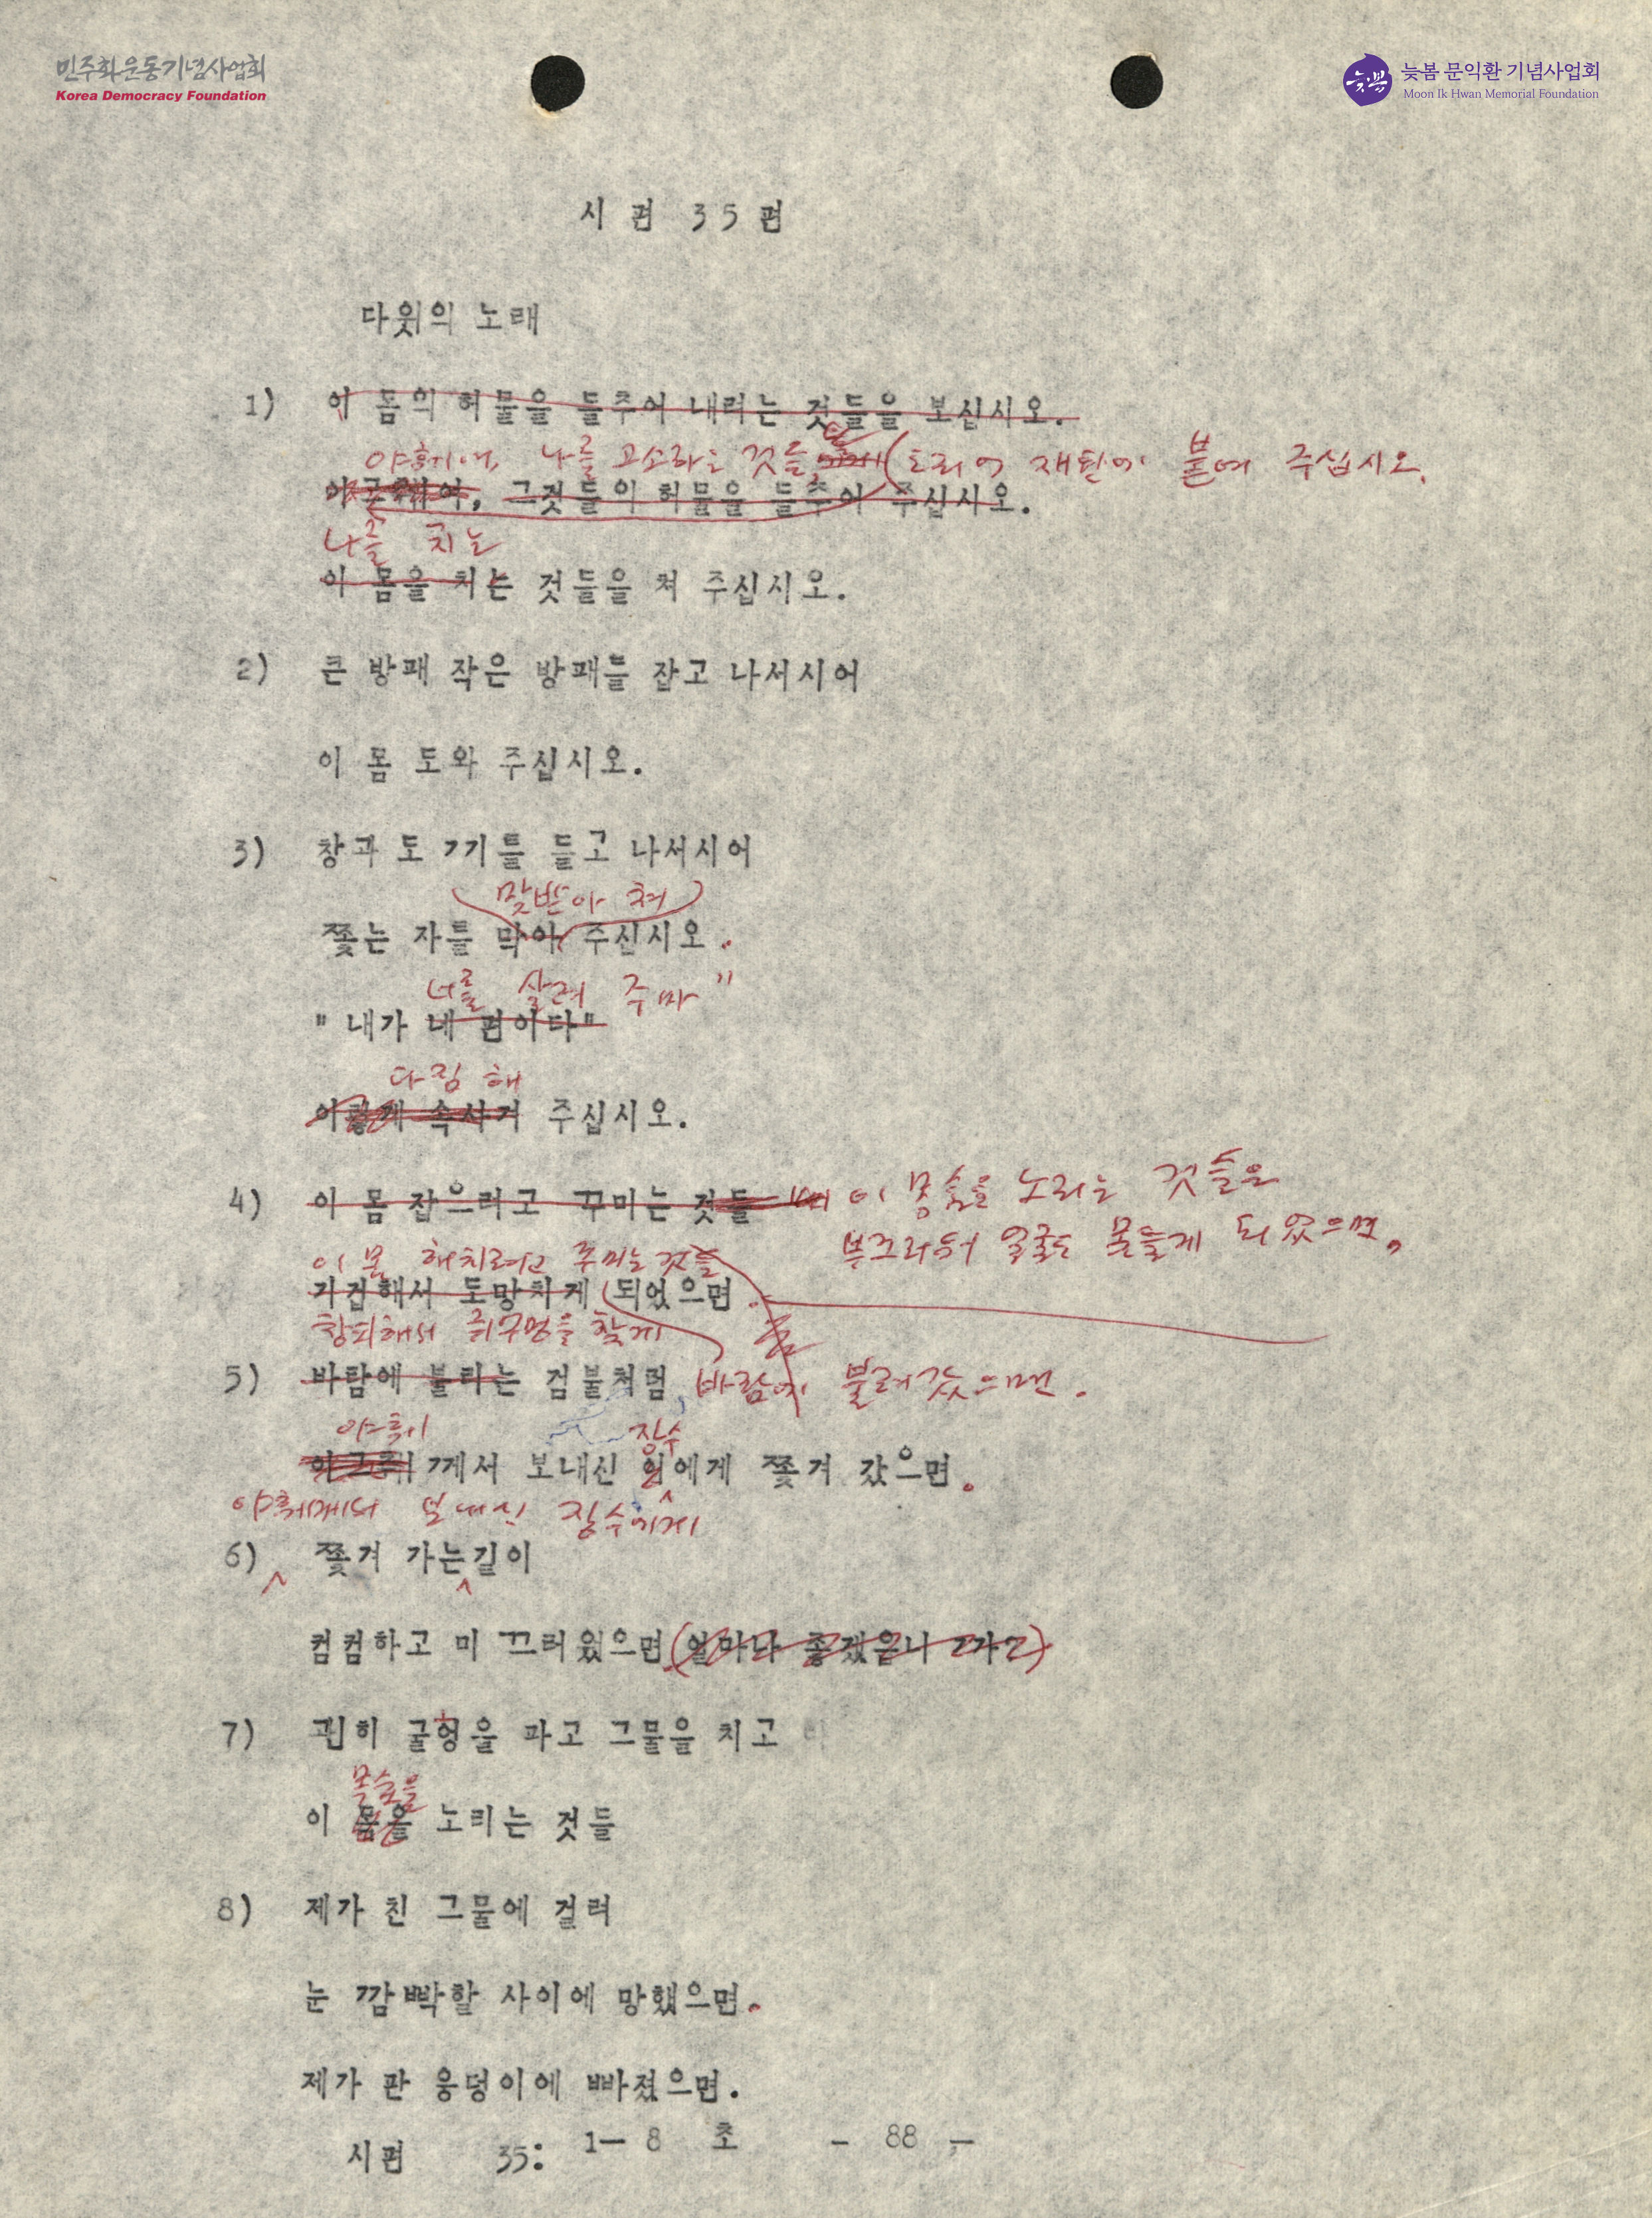 민주화운동기념사업회
Korea Democracy Foundation
늦봄
늦봄 문익환 기념사업회
Moon Ik Hwan Memorial Foundation
시 편 35 편
다윗의 노래
1) 이 몸의 허물을 들추어 내려는 것들을 보십시오.
야훼여, 나를 고소하는 것들을 도리어 재판에 붙여 주십시오.
그것들의 허물을 들추어 주십시오.
나를 치는
이 몸을 치는 것들을 쳐 주십시오.
2) 큰 방패 작은 방패를 잡고 나서시어
이 몸 도와 주십시오.
3) 창과 도끼를 들고 나서시어
맞받아 쳐
쫓는 자를 막아 주십시오.
너를 살려 주마"
"내가 네 편이다"
다짐 해
이렇게 속삭여 주십시오.
4) 이 몸 잡으려고 꾸미는 것들 이 목숨을 노리는 것들은
부끄러워 얼굴도 못들게 되었으면,
이 몸 해치려고 꾸미는 것들
기겁해서 도망치게 되었으면.
창피해서 쥐구멍을 찾게
5) 바람에 불리는 검불처럼 바람에 불려갔으면.
야훼 장수
께서 보내신 이에게 쫓겨 갔으면.
야훼께서 보내신 장수에게
6) 쫓겨 가는길이
컴컴하고 미끄러웠으면(얼마나 좋겠읍니까?)
7) 괜히 굴헝을 파고 그물을 치고
목숨을
이 몸을 노리는 것들
8) 제가 친 그물에 걸려
눈 깜빡할 사이에 망했으면.
제가 판 웅덩이에 빠졌으면.
시편 35: 1-8 초 - 88 -